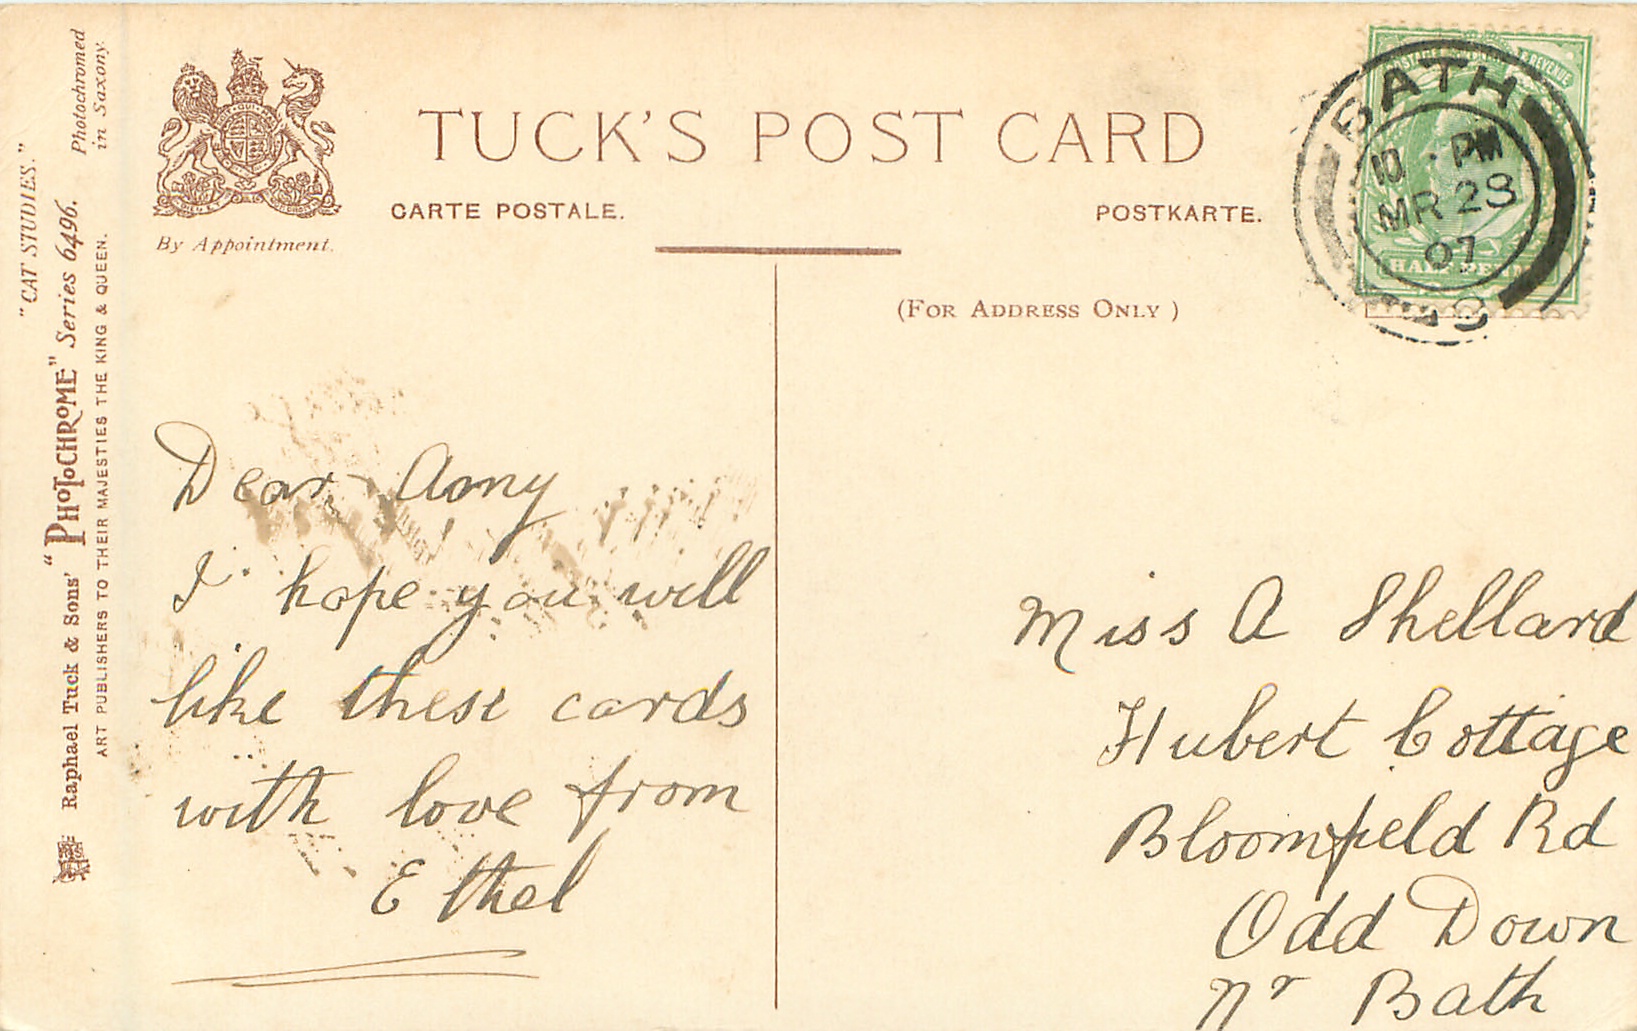 "CAT STUDIES."
Raphael Tuck & Sons' "PHOTOCHROME" Series 6496.
Photochromed
in Saxony.
ART PUBLISHERS TO THEIR MAJESTIES THE KING & QUEEN.
By Appointment.
TUCK'S POST CARD
CARTE POSTALE.
POSTKARTE.
(FOR ADDRESS ONLY)
POSTAGE & REVENUE
HALFPENNY
BATH
10 PM
MR 28
07
8
Dear Amy
I hope you will
like these cards
with love from
Ethel
Miss A Shellard
Hubert Cottage
Bloomfield Rd
Odd Down
Nr Bath